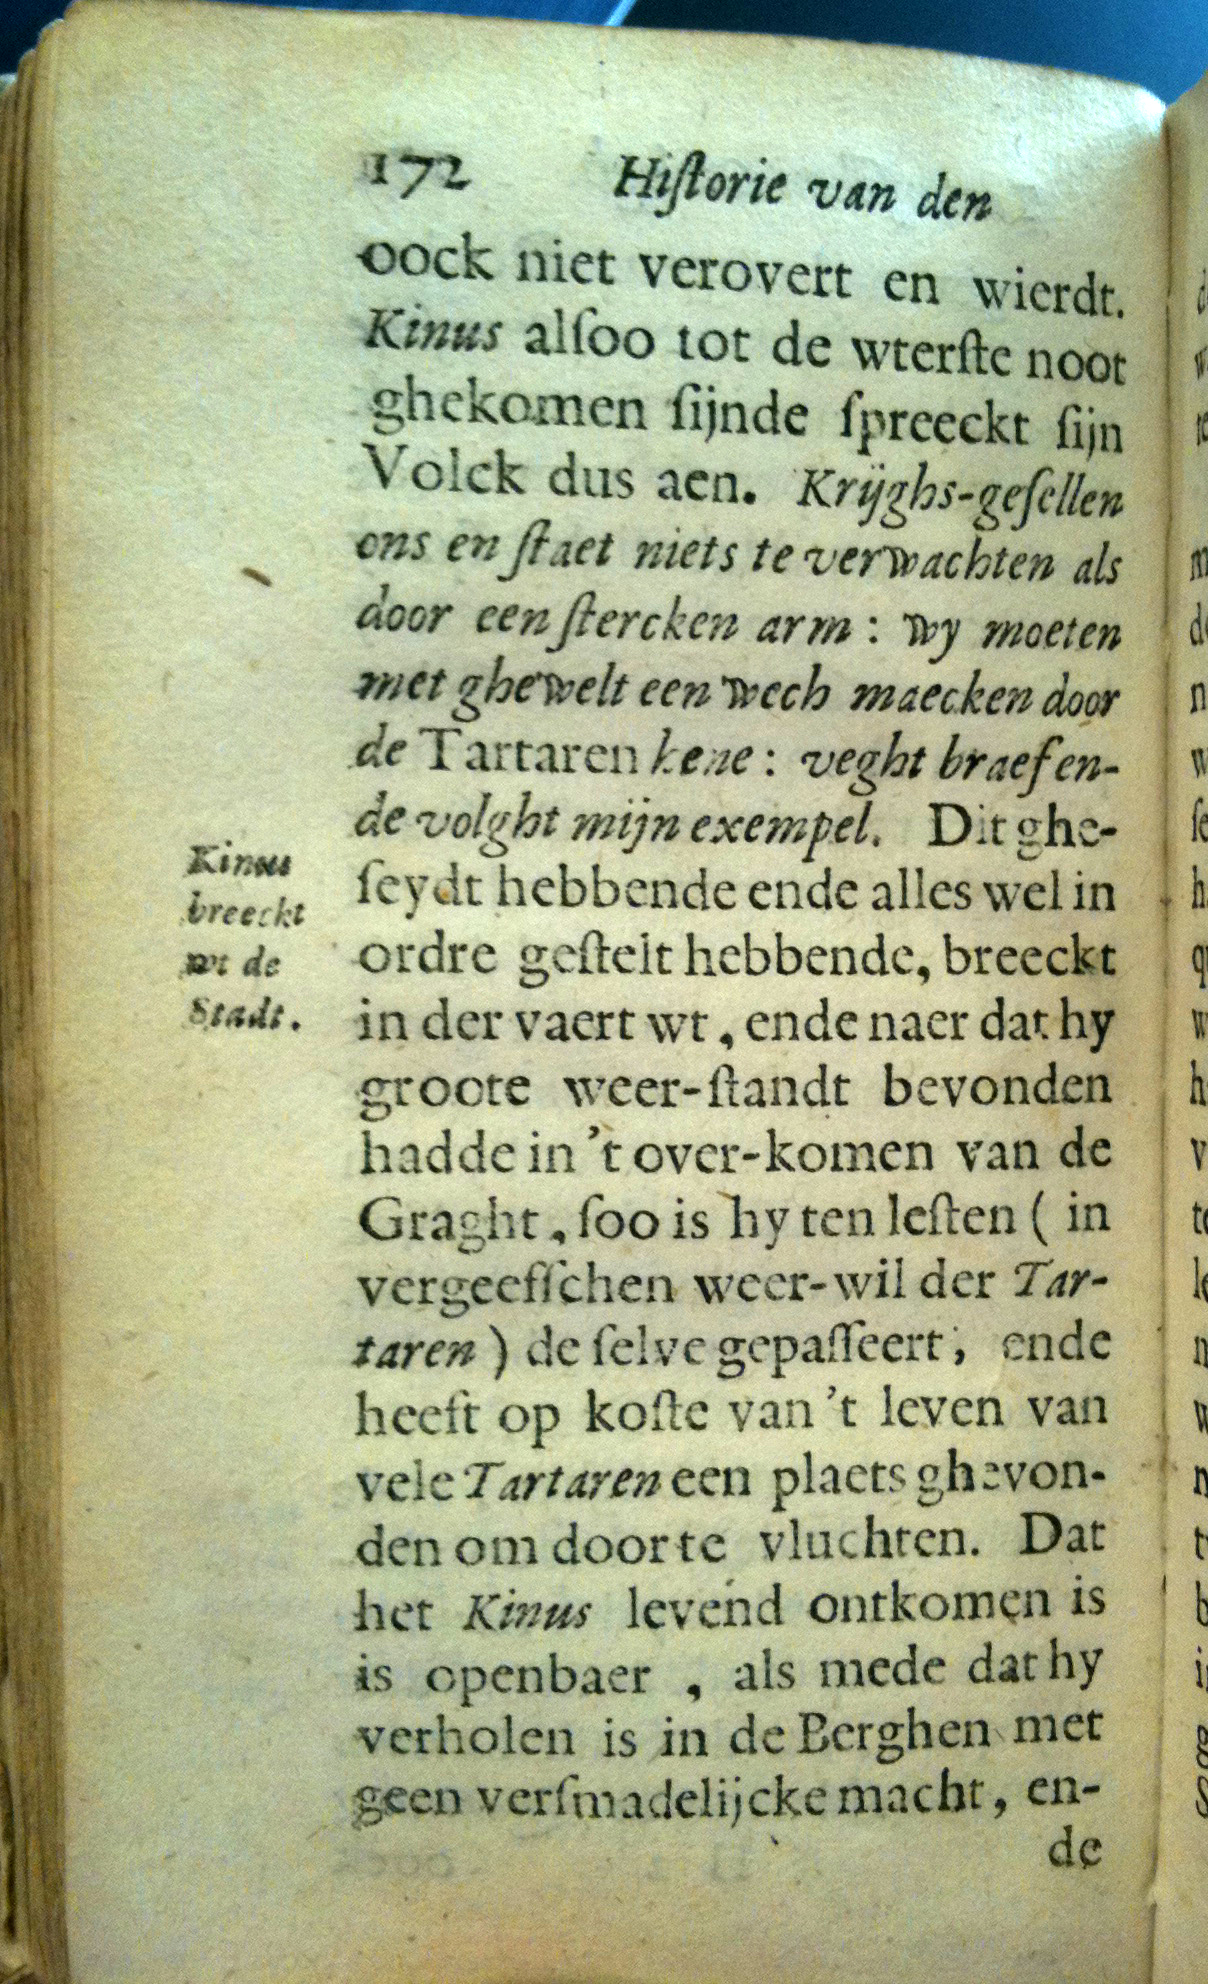 172 Hiſtorie van den
oock niet verovert en wierdt.
Kinus alſoo tot de wterſte noot
ghekomen ſijnde ſpreeckt ſijn
Volck dus aen. Krijghs-geſellen
ons en ſtaet niets te verwachten als
door een ſtercken arm : wy moeten
met ghewelt een wech maecken door
de Tartaren hene : veght braef en-
de volght mijn exempel. Dit ghe-
ſeydt hebbende ende alles wel in
ordre geſtelt hebbende, breeckt
in der vaert wt, ende naer dat hy
groote weer-ſtandt bevonden
hadde in 't over-komen van de
Graght, ſoo is hy ten leſten ( in
vergeefſchen weer-wil der Tar-
taren ) de ſelve gepaſſeert, ende
heeft op koſte van 't leven van
vele Tartaren een plaets ghevon-
den om door te vluchten. Dat
het Kinus levend ontkomen is
is openbaer, als mede dat hy
verholen is in de Berghen met
geen verſmadelijcke macht, en-
de
Kinus
breeckt
wt de
Stadt.